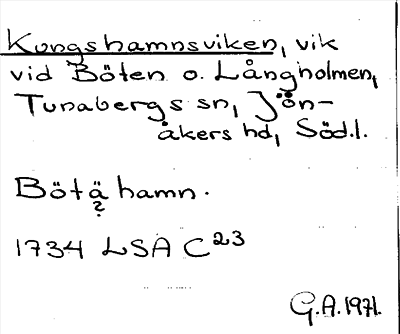 Kungshamnsviken, vik
vid Böten o. Långholmen,
Tunabergs sn, Jön-
åkers hd, Söd.l.
Bötä hamn.
?
1734 LSA C23
G.A. 1971.